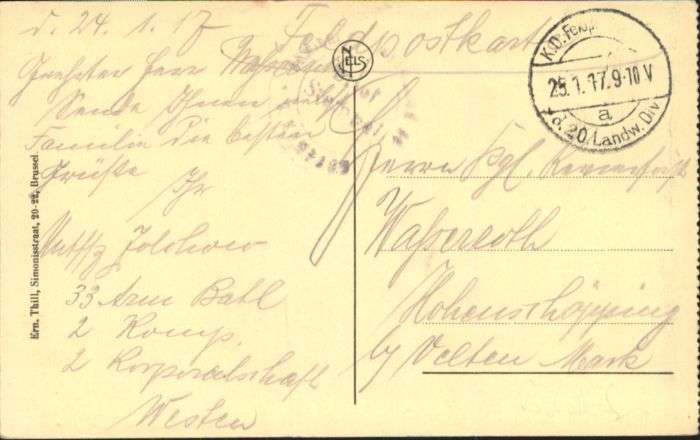 d. 24. 1. 17
Feldpostkarte
Geehrter Herr
Sende Ihnen nebst
Familie die besten
Grüße
Ihr
33 Arm Batl
2 Komp.
2 Korporalschaft
Westen
Ern. Thill, Simonisstraat, 20-22, Brussel
NELS
K.D. Feldp
25.1.17.9-10 V
a
d. 20. Landw. Div
Herrn Kgl.
Wasseroth
Hohenschöpping
by Velten Mark